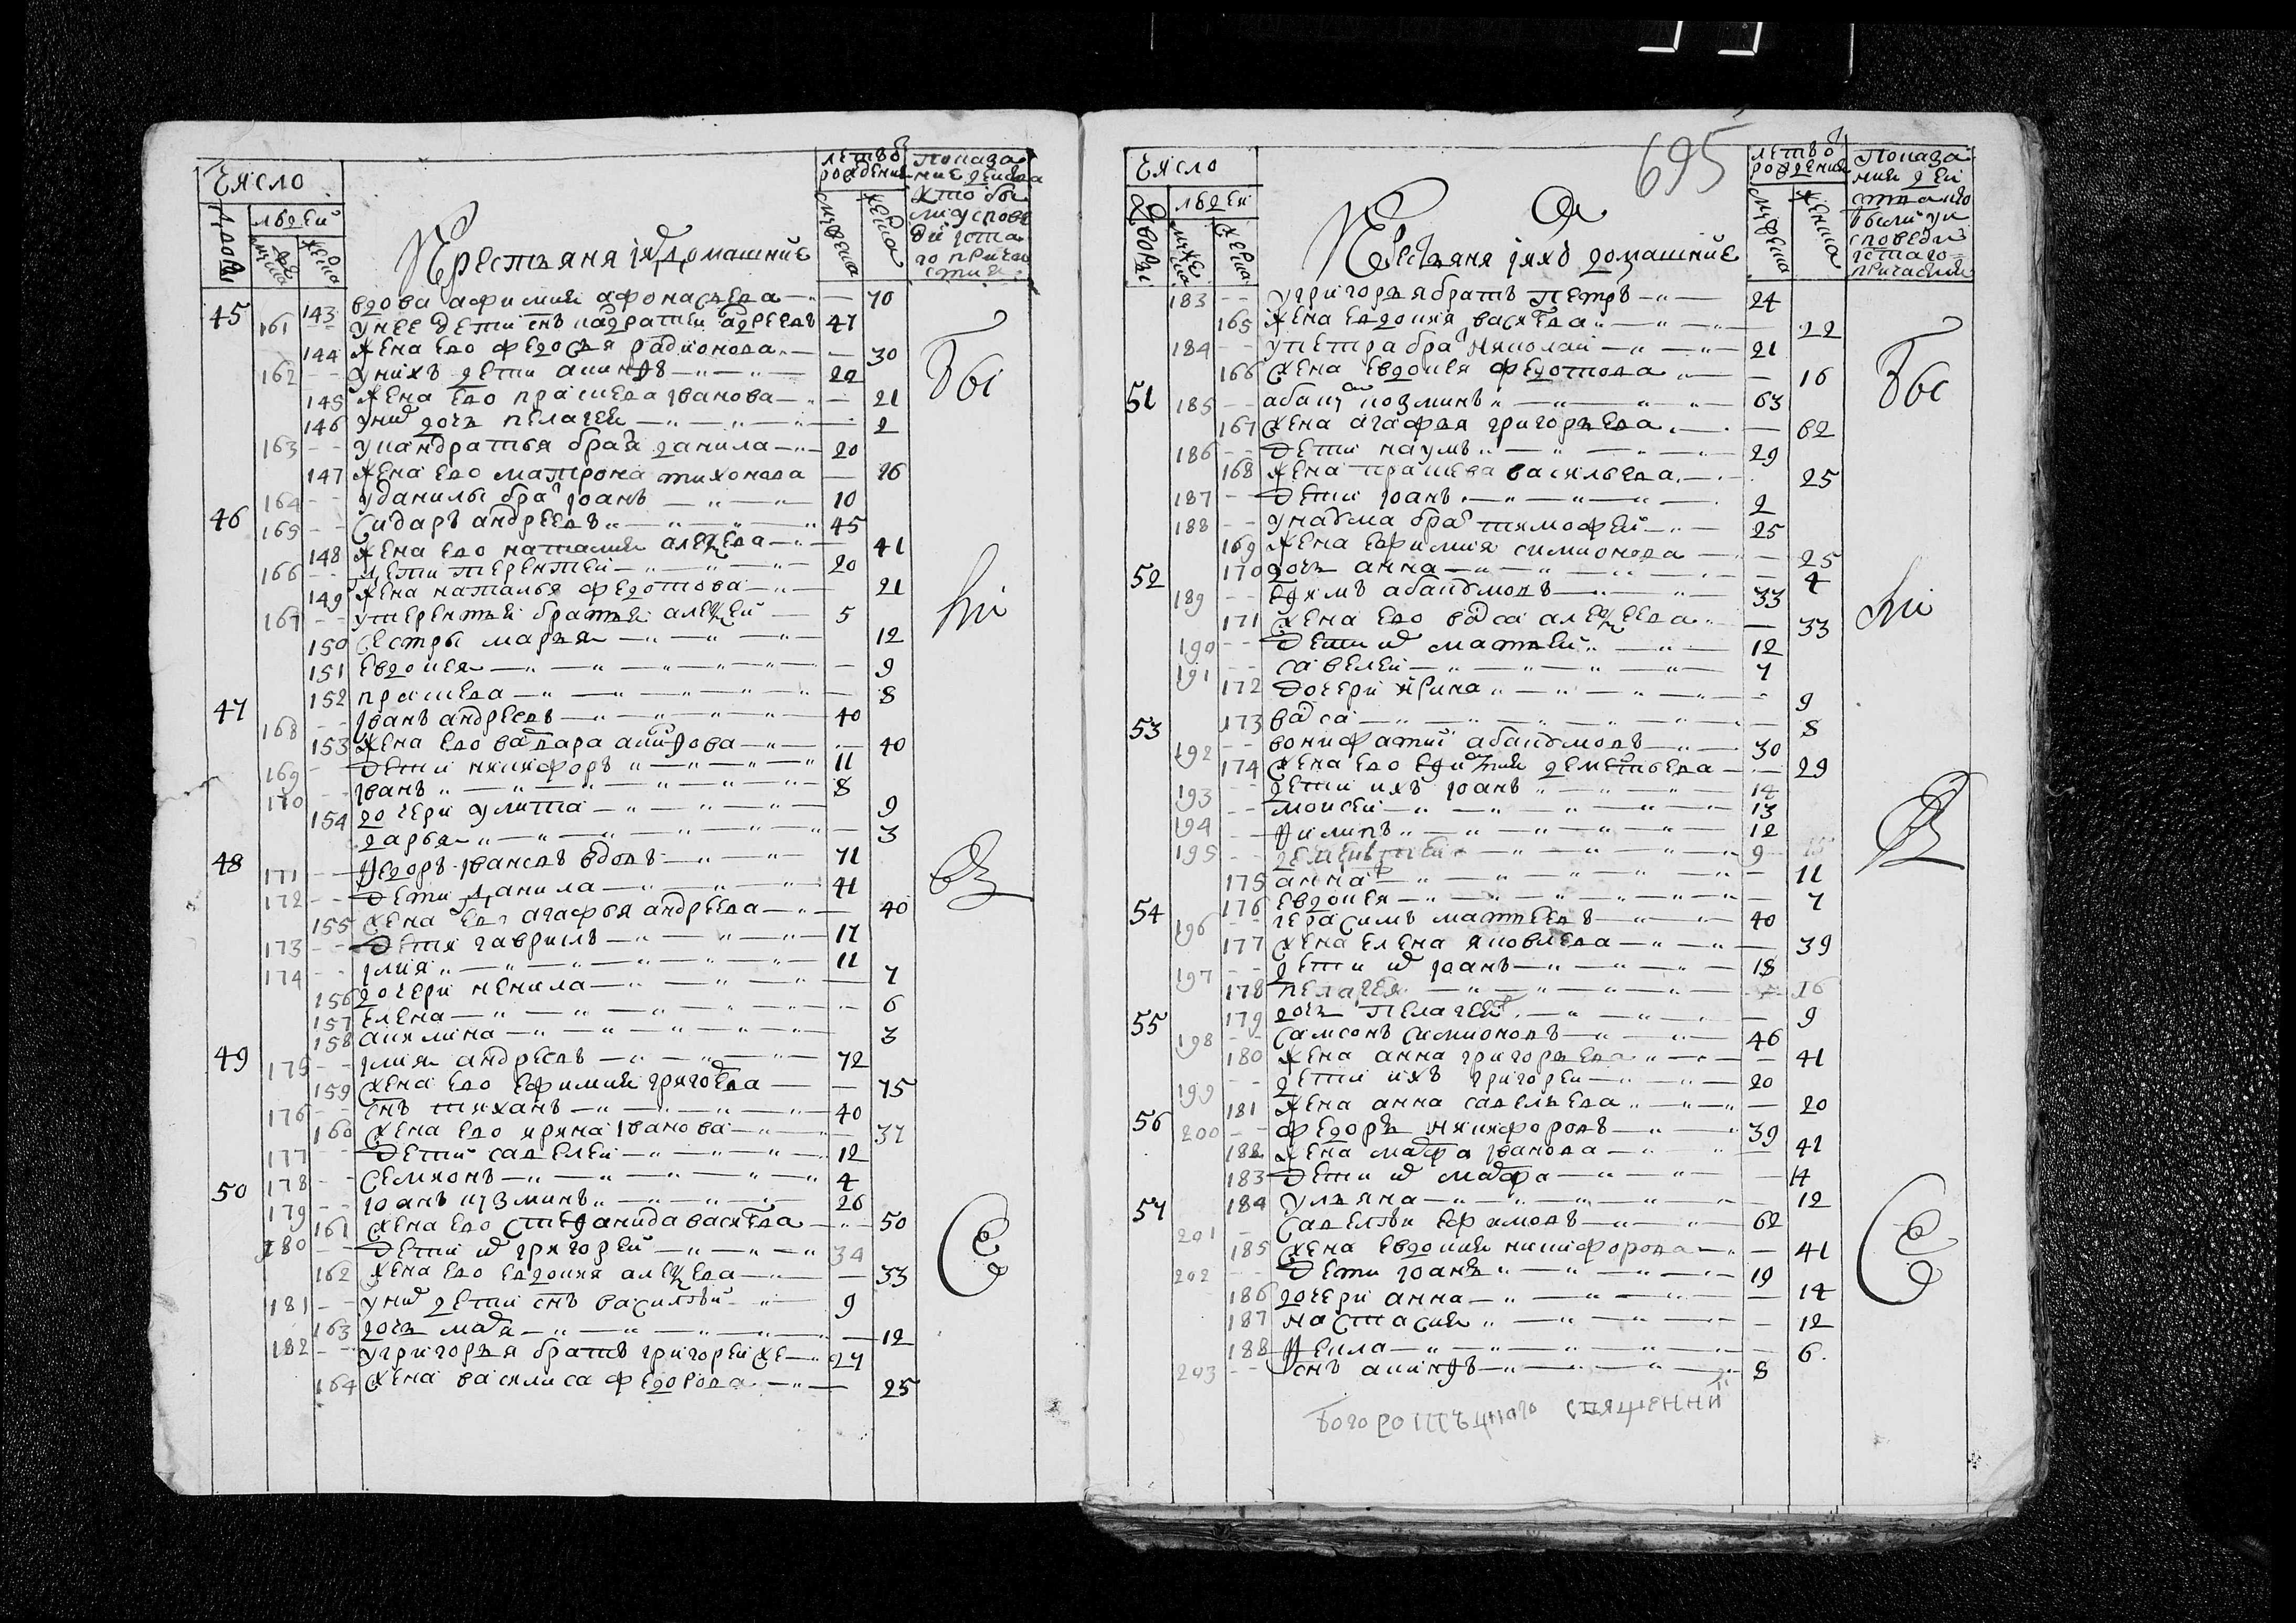 Число
Дворы
людей
мужеска
женска
Крестьяня i ихъ домашние
лет от рождения
мужеска
женска
Показание действа кто был у исповеди и святаго причастия
45 143 вдова афимия афонасьева 70
161 у нее дети снъ кадратей адреевъ 47
144 жена ево федосья радионова 30
162 у нихъ дети акинфъ 22
145 жена ево прасковя iванова 21
146 у них дочь пелагея 2
163 у кандратья братъ данила 20
147 жена ево матрона тихонова 26
164 у данилы братъ iоанъ 10
46 165 Сидаръ андреевъ 45
148 жена ево наталия алеѯеева 41
166 дети терентей 20
149 жена наталья федотова 21
167 у терентья братья алеѯей 5
150 Сестры марья 12
151 евдокея 9
152 праскева 8
47 168 iванъ андреевъ 40
153 жена ево варвара акинфова 40
169 дети никифоръ 11
170 iванъ 8
154 дочери улита 9
дарья 3
48 171 Ѳедоръ iвановъ вдовъ 71
172 дети Данила 41
155 жена ево агафья андреева 40
173 дети гаврилъ 17
174 iлия 11
156 дочери ненила 7
157 елена 6
158 акилина 3
49 175 iлия андреевъ 72
159 жена ево ефимия григорева 75
176 снъ тиханъ 40
160 жена ево ирина iванова 37
177 дети савелей 12
178 семионъ 4
50 179 iоанъ кузминъ 26
161 жена ево стефанида василева 50
180 дети их григорей 34
162 жена ево евдокия алеѯеева 33
181 у них дети снъ василей 9
163 дочь марфа 12
182 у григорья братъ григорей же 27
164 жена василиса федорова 25
Бы
ли
Вз
Се
695
Число
Дворы
людей
мужеска
женска
Крестьяня i ихъ домашние
лет от рождения
мужеска
женска
Показание действа кто были у исповеди и святаго причастия
183 у григорья братъ петръ 24
165 жена евдокия василева 22
184 у петра братъ николай 21
166 жена евдокея федотова 16
51 185 абакумъ козминъ 63
167 жена агафья григорьева 62
186 дети наумъ 29
168 жена праскева васильева 25
187 дети iоанъ 2
188 у наума братъ тимофей 25
169 жена ефимия симионова 25
170 дочь анна 4
52 189 ефимъ абакумовъ 33
171 жена ево васа алеѯеева 33
190 дети их матвей 12
191 савелей 7
172 дочери ирина 9
173 васа 8
53 192 вонифатий абакумовъ 30
174 жена ево ефимия дементьева 29
193 дети ихъ iоанъ 14
194 моисей 13
195 филипъ 12
дементей 9
175 анна 11
176 евдокея 7
54 196 герасимъ матвеевъ 40
177 жена елена яковлева 39
197 дети их iоанъ 18
178 пелагея 16
179 дочь пелагея 9
55 198 самсонъ симионовъ 46
180 жена анна григорьева 41
199 дети ихъ григорей 20
181 жена анна савельева 20
56 200 федоръ никифоровъ 39
182 жена марфа iванова 41
183 дети их марфа 14
184 ульяна 12
57 201 Савелей ефимовъ 62
185 жена евдокия никифорова 41
202 дети iоанъ 19
186 дочери анна 14
187 настасия 12
188 Ѳекла 6
203 снъ акинфъ 8
Бы
ли
Вз
Се